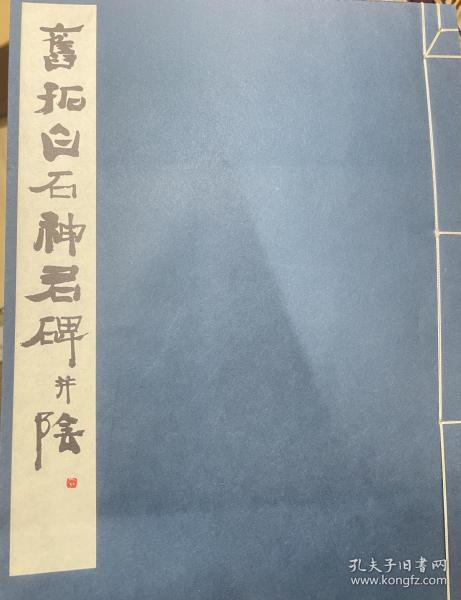 舊拓白石神君碑并陰
孔夫子旧书网
www.kongfz.com